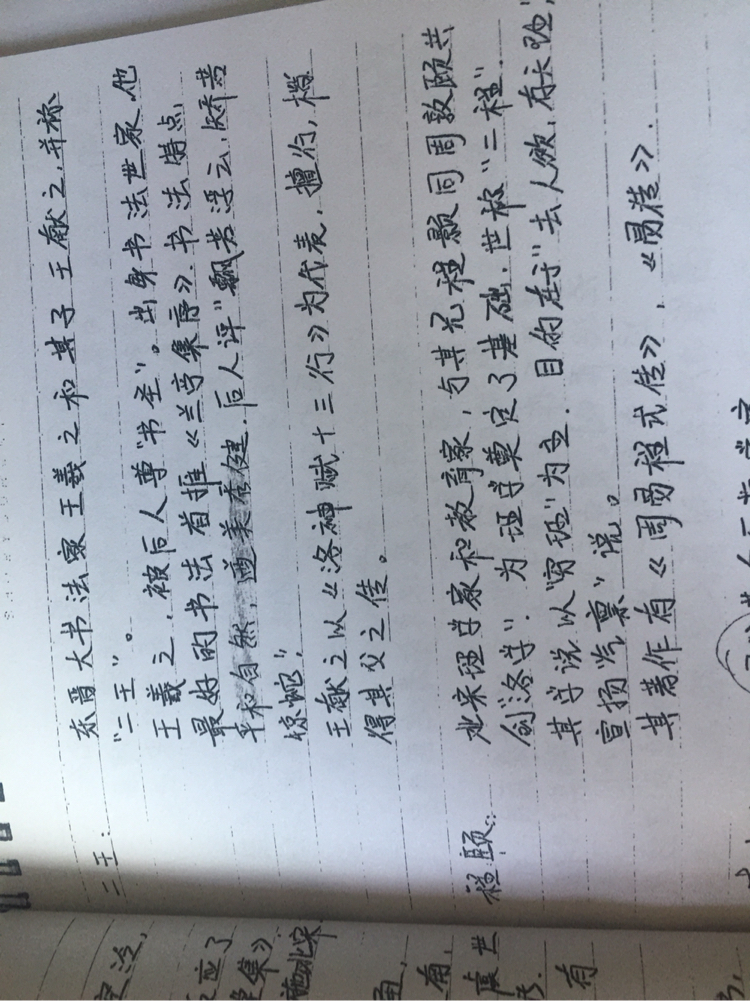 二王：
东晋大书法家王羲之和其子王献之，并称
"二王"。
王羲之，被后人尊"书圣"。出身书法世家，他
最好的书法首推《兰亭集序》。书法特点，
平和自然，遒美春健，后人评"飘若浮云，矫若
惊蛇，
王献之以《洛神赋十三行》为代表，擅行，楷
得其父之传。
程颐：
北宋理学家和教育家，与其兄程颢同周敦颐共
创"洛学"，为理学奠定了基础，世称"二程"。
其学说以"穷理"为主，目的在于"去人欲，存天理"，
宣扬"气禀"说。
其著作有《周易程式传》、《易传》。
应了
集》
北宋
有，
虞世
有